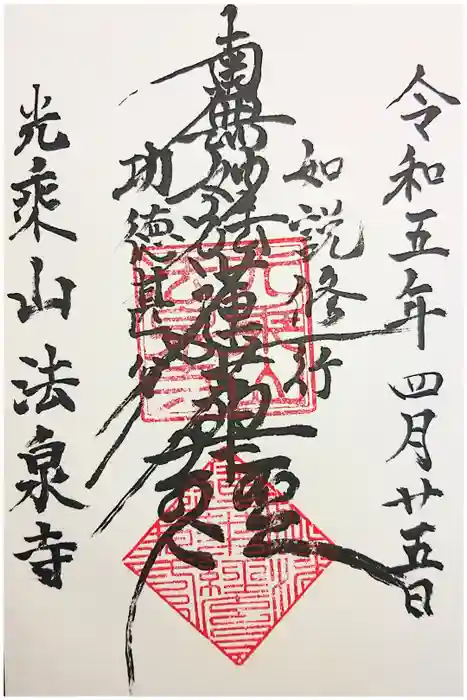 令和五年 四月廿五日
如説修行
南無妙法蓮華経
功徳甚多
光乘山 法泉寺